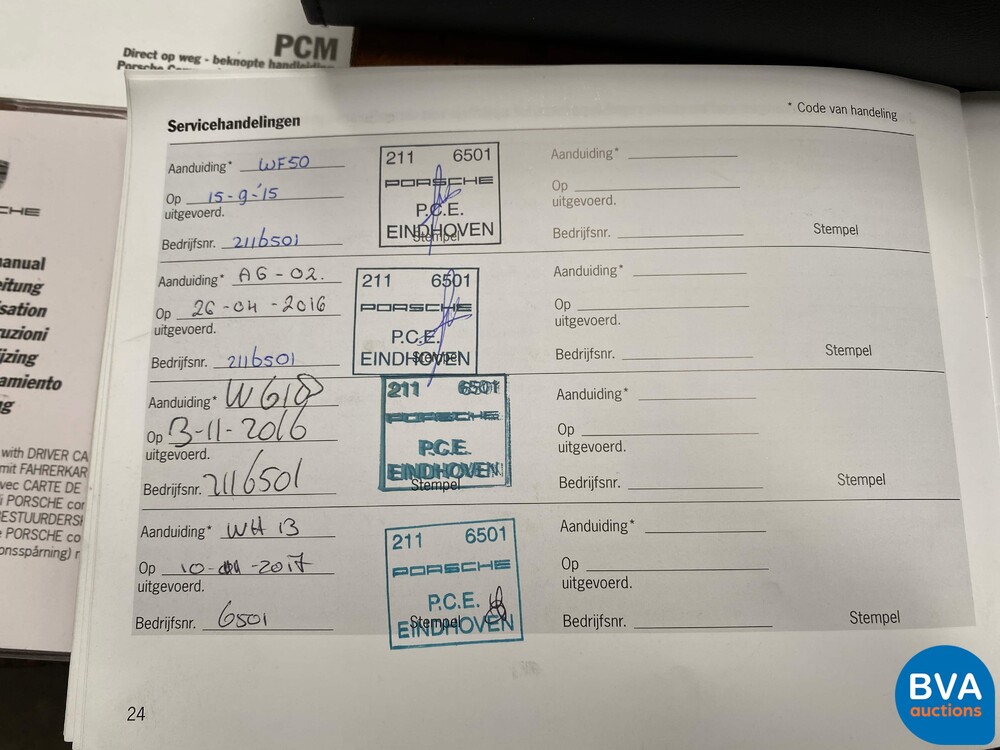 PCM
Direct op weg - beknopte handleiding
CHE
anual
eitung
isation
ruzioni
ijzing
amiento
ng
with DRIVER CA
mit FAHRERKAR
vec CARTE DE
i PORSCHE cor
BESTUURDERS
PORSCHE co
onsspårning)
Servicehandelingen
* Code van handeling
Aanduiding* WF50
Op 15-9-'15
uitgevoerd.
Bedrijfsnr. 2116501
211 6501
PORSCHE
P.C.E.
EINDHOVEN
Stempel
Aanduiding*
Op
uitgevoerd.
Bedrijfsnr.
Stempel
Aanduiding* AG-02.
Op 26-04-2016
uitgevoerd.
Bedrijfsnr. 2116501
211 6501
PORSCHE
P.C.E.
EINDHOVEN
Stempel
Aanduiding*
Op
uitgevoerd.
Bedrijfsnr.
Stempel
Aanduiding*
Op 3-11-2016
uitgevoerd.
Bedrijfsnr. 2116501
211 6501
PORSCHE
P.C.E.
EINDHOVEN
Stempel
Aanduiding*
Op
uitgevoerd.
Bedrijfsnr.
Stempel
Aanduiding* WH 13
Op 10- -2017
uitgevoerd.
Bedrijfsnr. 6501
211 6501
PORSCHE
P.C.E.
EINDHOVEN
Stempel
Aanduiding*
Op
uitgevoerd.
Bedrijfsnr.
Stempel
24
BVA
auctions